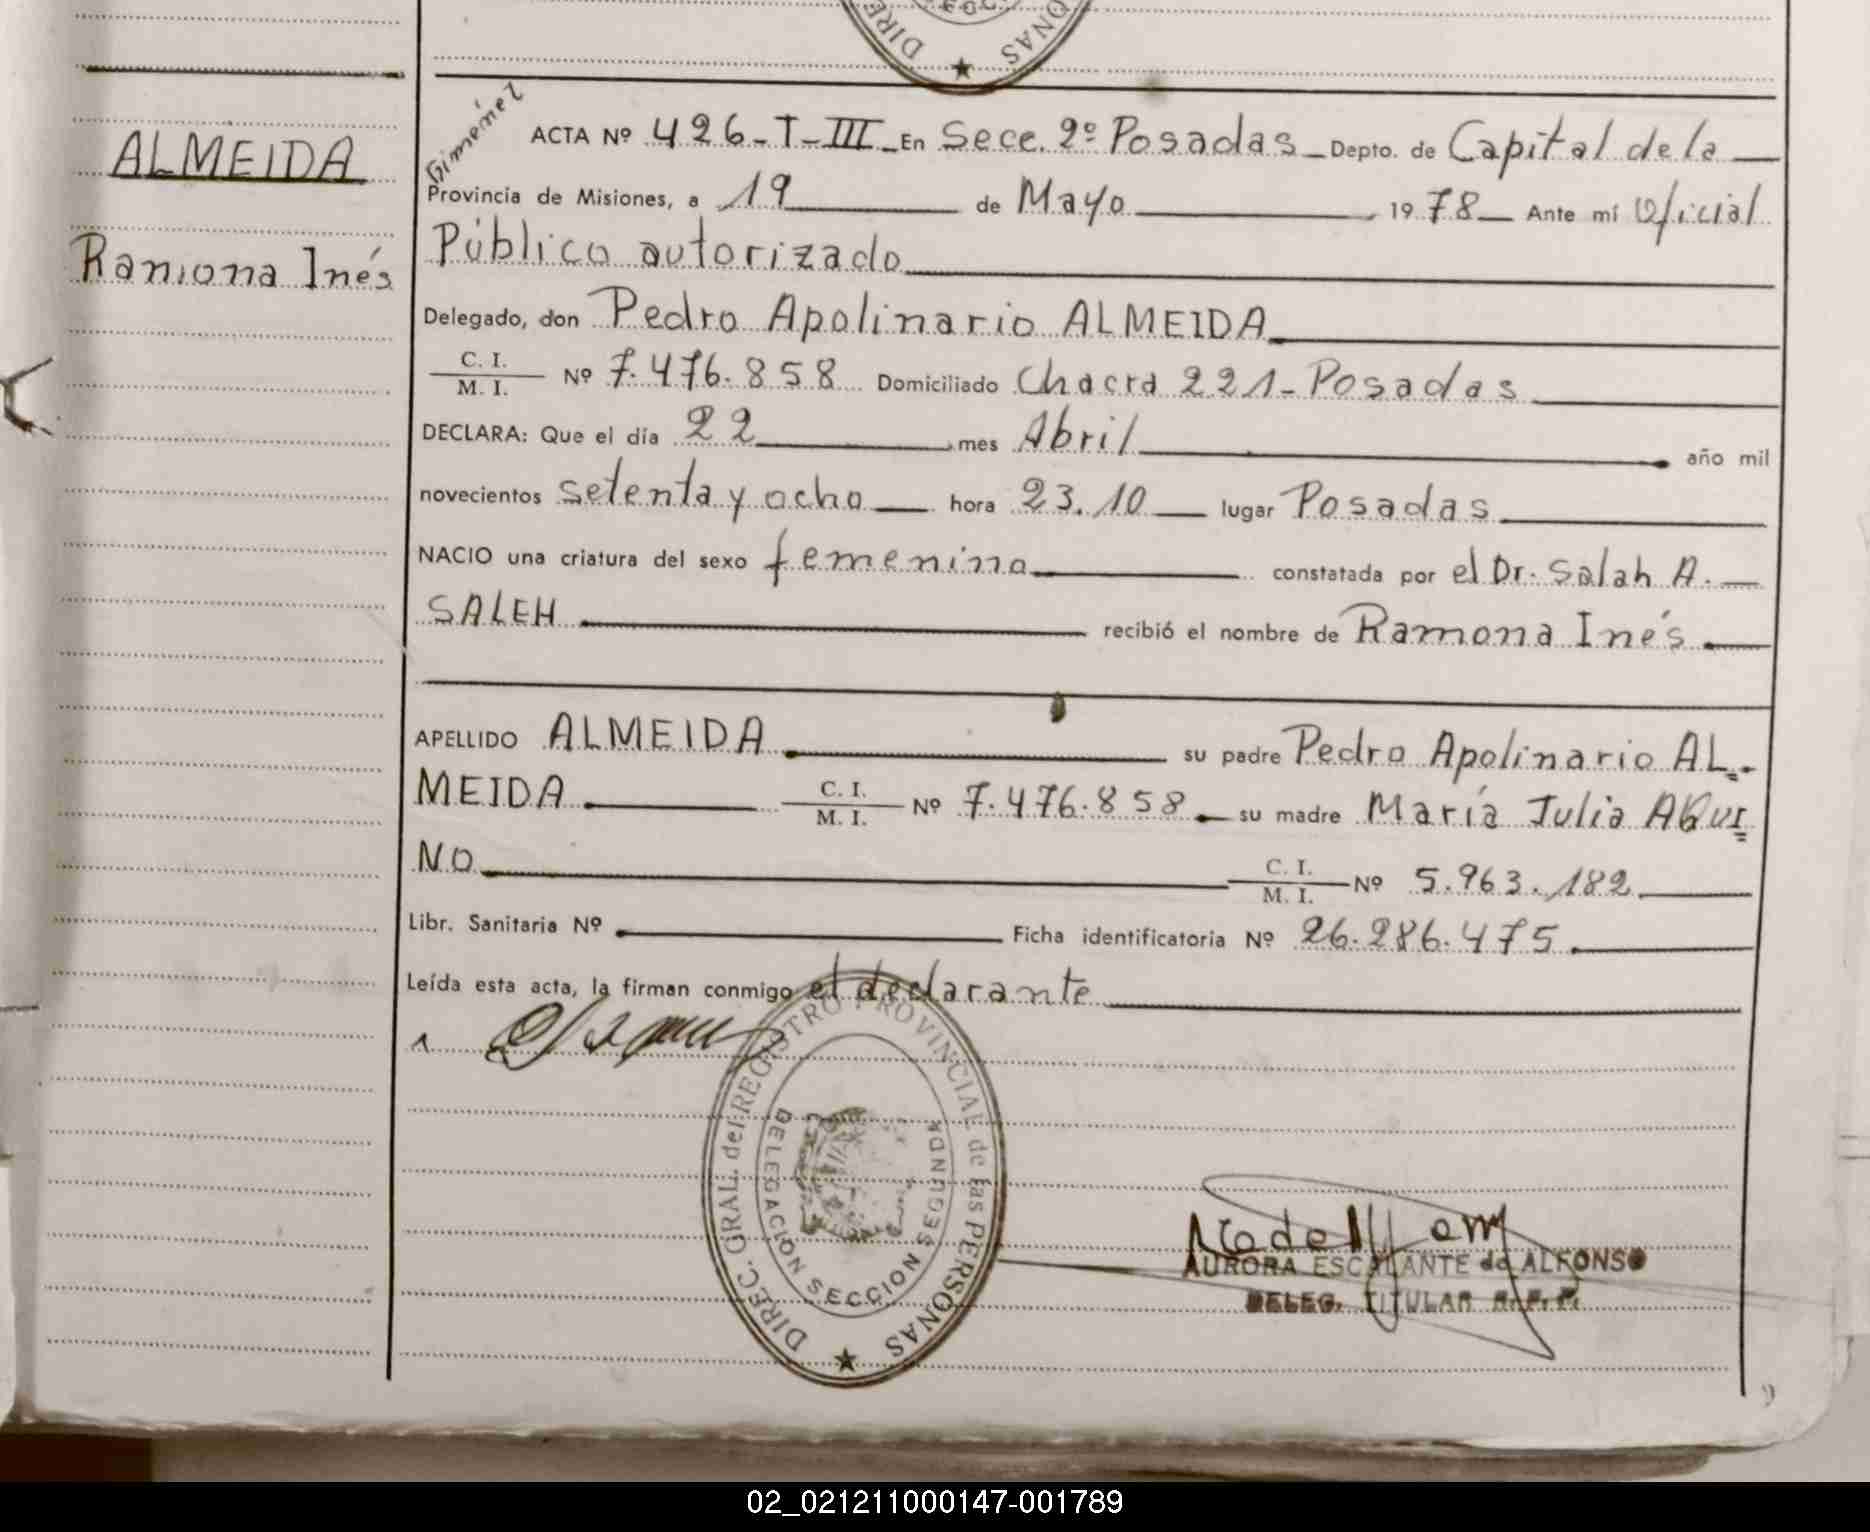 DIREC. ECC. PERSONAS
ALMEIDA
Ramona Inés
Gimenez
ACTA Nº 426-T-III-En Secc. 2º Posadas-Depto. de Capital de la
Provincia de Misiones, a 19 de Mayo 1978 Ante mí Oficial
Público autorizado
Delegado, don Pedro Apolinario ALMEIDA
C. I.
M. I. Nº 7.476.858 Domiciliado Chacra 221-Posadas
DECLARA: Que el día 22 mes Abril año mil
novecientos setenta y ocho hora 23.10 lugar Posadas
NACIO una criatura del sexo femenino constatada por el Dr. Salah A.
SALEH recibió el nombre de Ramona Inés
APELLIDO ALMEIDA su padre Pedro Apolinario AL=
MEIDA C. I.
M. I. Nº 7.476.858 su madre María Julia AQUI=
NO C. I.
M. I. Nº 5.963.182
Libr. Sanitaria Nº Ficha identificatoria Nº 26.286.475
Leída esta acta, la firman conmigo el declarante
DIREC. GRAL. del REGISTRO PROVINCIAL de las PERSONAS
DELEGACION SECCION SEGUNDA
AURORA ESCALANTE de ALFONSO
DELEG. TITULAR R.P.P.
02_021211000147-001789